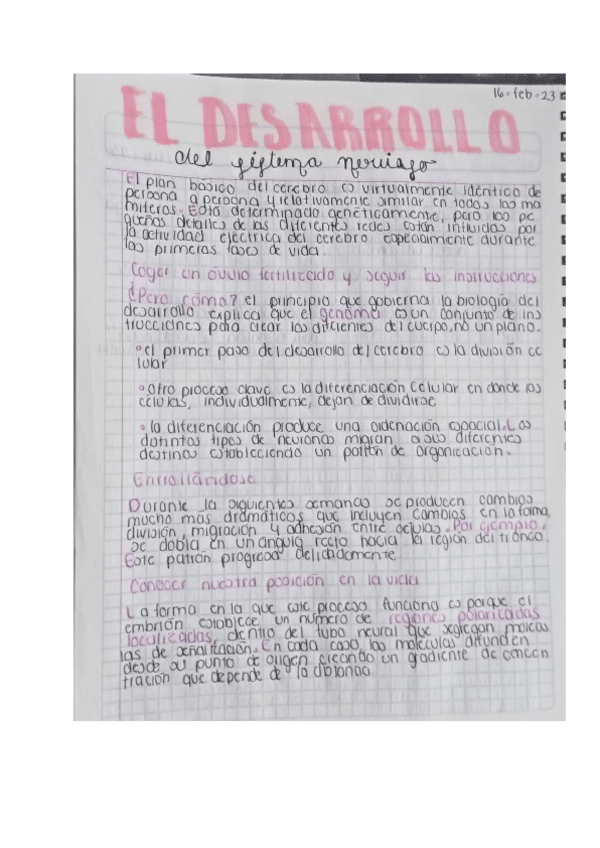 16-feb-23
EL DESARROLLO
del sistema nervioso
El plan básico del cerebro es virtualmente idéntico de
persona a persona y relativamente similar en todos los ma
míferos. Está determinado genéticamente, pero los pe
queños detalles de las diferentes redes están influidos por
la actividad eléctrica del cerebro especialmente durante
las primeras fases de vida.
Coger un óvulo fertilizado y seguir las instrucciones
¿Pero cómo? el principio que gobierna la biología del
desarrollo explica que el genoma es un conjunto de ins
trucciones para crear los diferentes del cuerpo, no un plano.
• el primer paso del desarrollo del cerebro es la división ce
lular
• Otro proceso clave es la diferenciación celular en donde las
células, individualmente, dejan de dividirse
• la diferenciación produce una ordenación espacial. Los
distintos tipos de neuronas migran a sus diferentes
destinos estableciendo un patrón de organización.
Enrrollándose
Durante la siguientes semanas se producen cambios
mucho más dramáticos que incluyen cambios en la forma,
división, migración y adhesión entre células. Por ejemplo,
se dobla en un angulo recto hacia la región del tronco.
Este patrón progresa delicadamente
Conocer nuestra posición en la vida
La forma en la que este proceso funciona es porque el
embrión establece un número de regiones polarizadas
localizadas, dentro del tubo neural que segregan molécu
las de señalización. En cada caso, las moléculas difunden
desde su punto de origen creando un gradiente de concen
tración que depende de la distancia